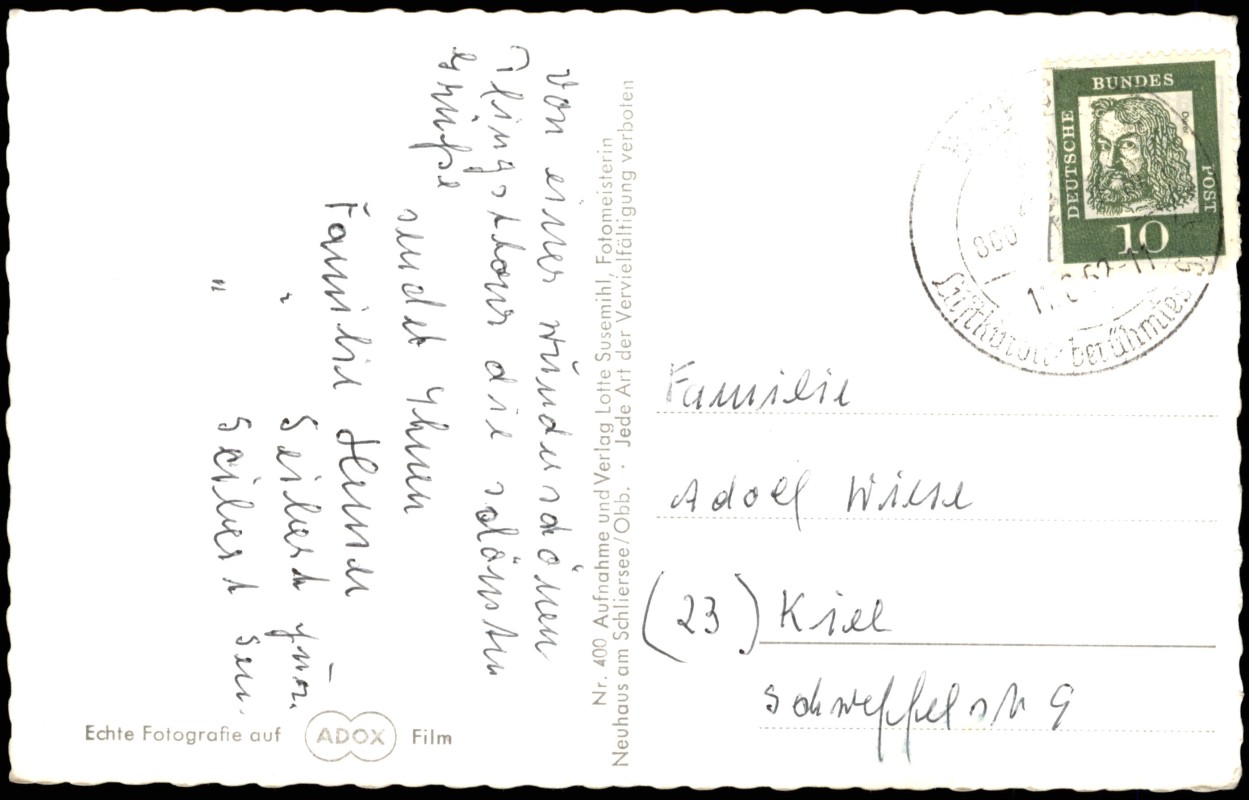 Von einer wunderschönen
Pfingsttour die schönsten
Grüße
sendet Ihnen
Familie Henner
" Seibert jun.
" Seibert sen.
Echte Fotografie auf ADOX Film
Nr. 400 Aufnahme und Verlag Lotte Susemihl, Fotomeisterin
Neuhaus am Schliersee/Obb. · Jede Art der Vervielfältigung verboten
DEUTSCHE BUNDES POST
Dürer
10
62-11
Luftkurort
Familie
Adolf Wiese
(23) Kiel
9